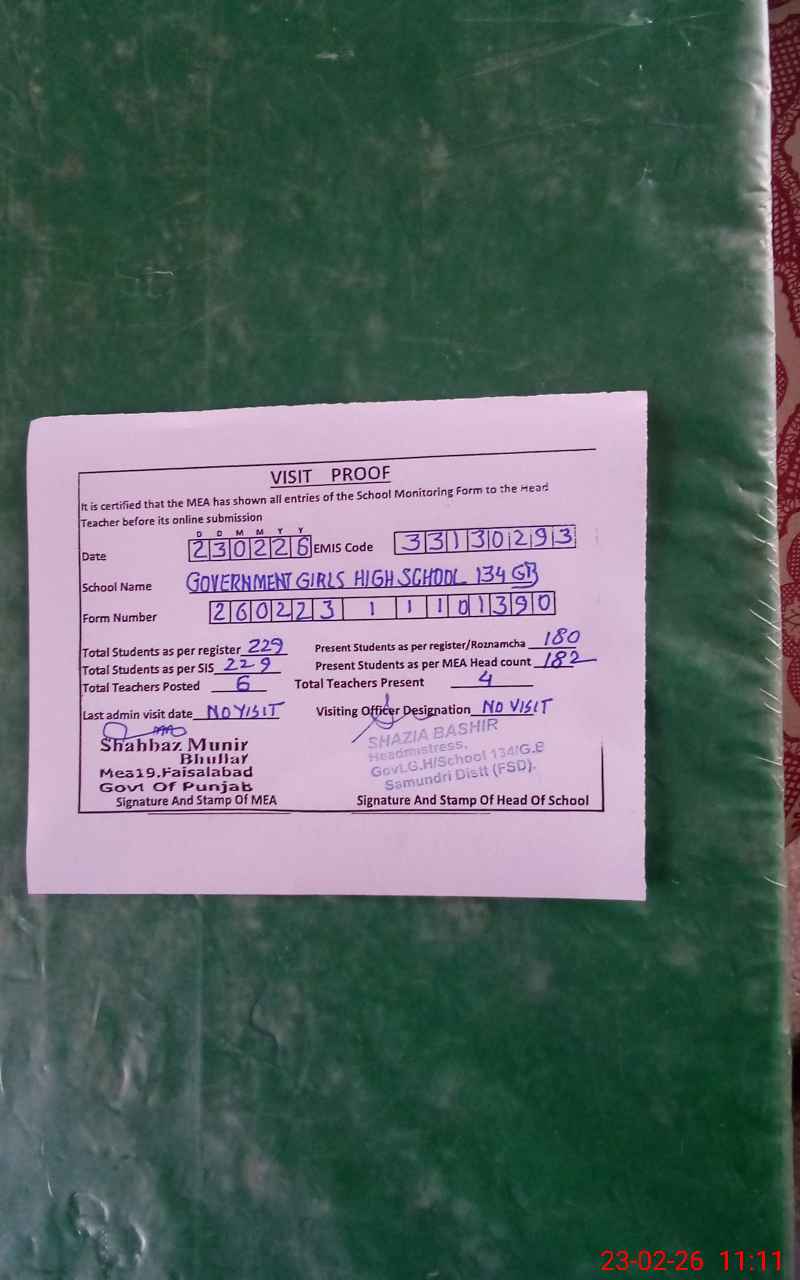 VISIT PROOF
It is certified that the MEA has shown all entries of the School Monitoring Form to the Head
Teacher before its online submission
D D M M Y Y
Date 230226 EMIS Code 33130293
School Name GOVERNMENT GIRLS HIGH SCHOOL 134 GB
Form Number 260223 1 1 101390
Total Students as per register 229 Present Students as per register/Roznamcha 180
Total Students as per SIS 229 Present Students as per MEA Head count 182
Total Teachers Posted 6 Total Teachers Present 4
Last admin visit date NO VISIT Visiting Officer Designation NO VISIT
Shahbaz Munir
Bhullar
Mea19.Faisalabad
Govt Of Punjab
Signature And Stamp Of MEA
SHAZIA BASHIR
Headmistress,
Govt.G.H/School 134/G.B
Samundri Distt (FSD).
Signature And Stamp Of Head Of School
23-02-26 11:11